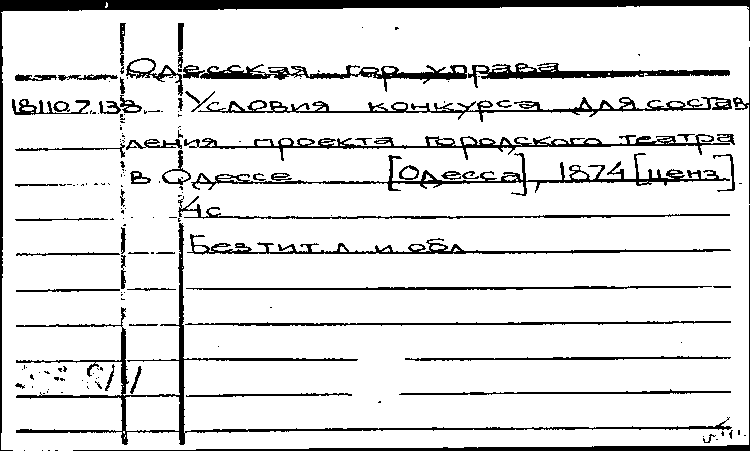 Одесская гор управа
18110.7.138 Условия конкурса для состав
ления проекта городского театра
в Одессе [Одесса], 1874 [ценз]
4с
Без тит л и обл